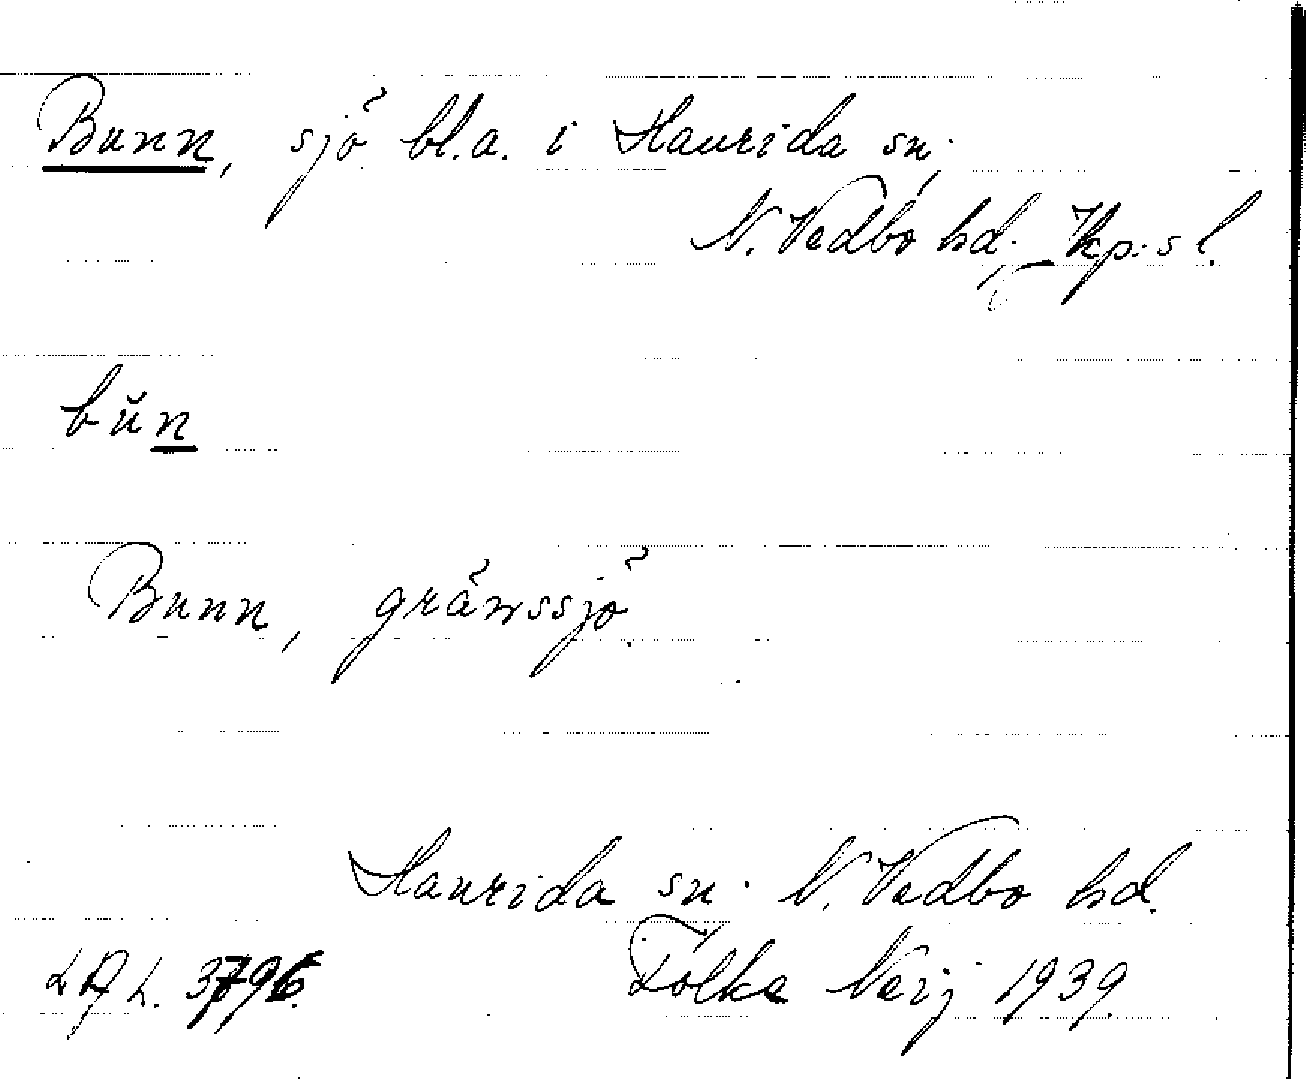 Bunn, sjö bl.a. i Haurida sn,
N. Vedbo hd. Jkp:s l.
bŭn
Bunn, gränssjö.
Haurida sn. N. Vedbo hd.
3796. Folke Neij 1939.